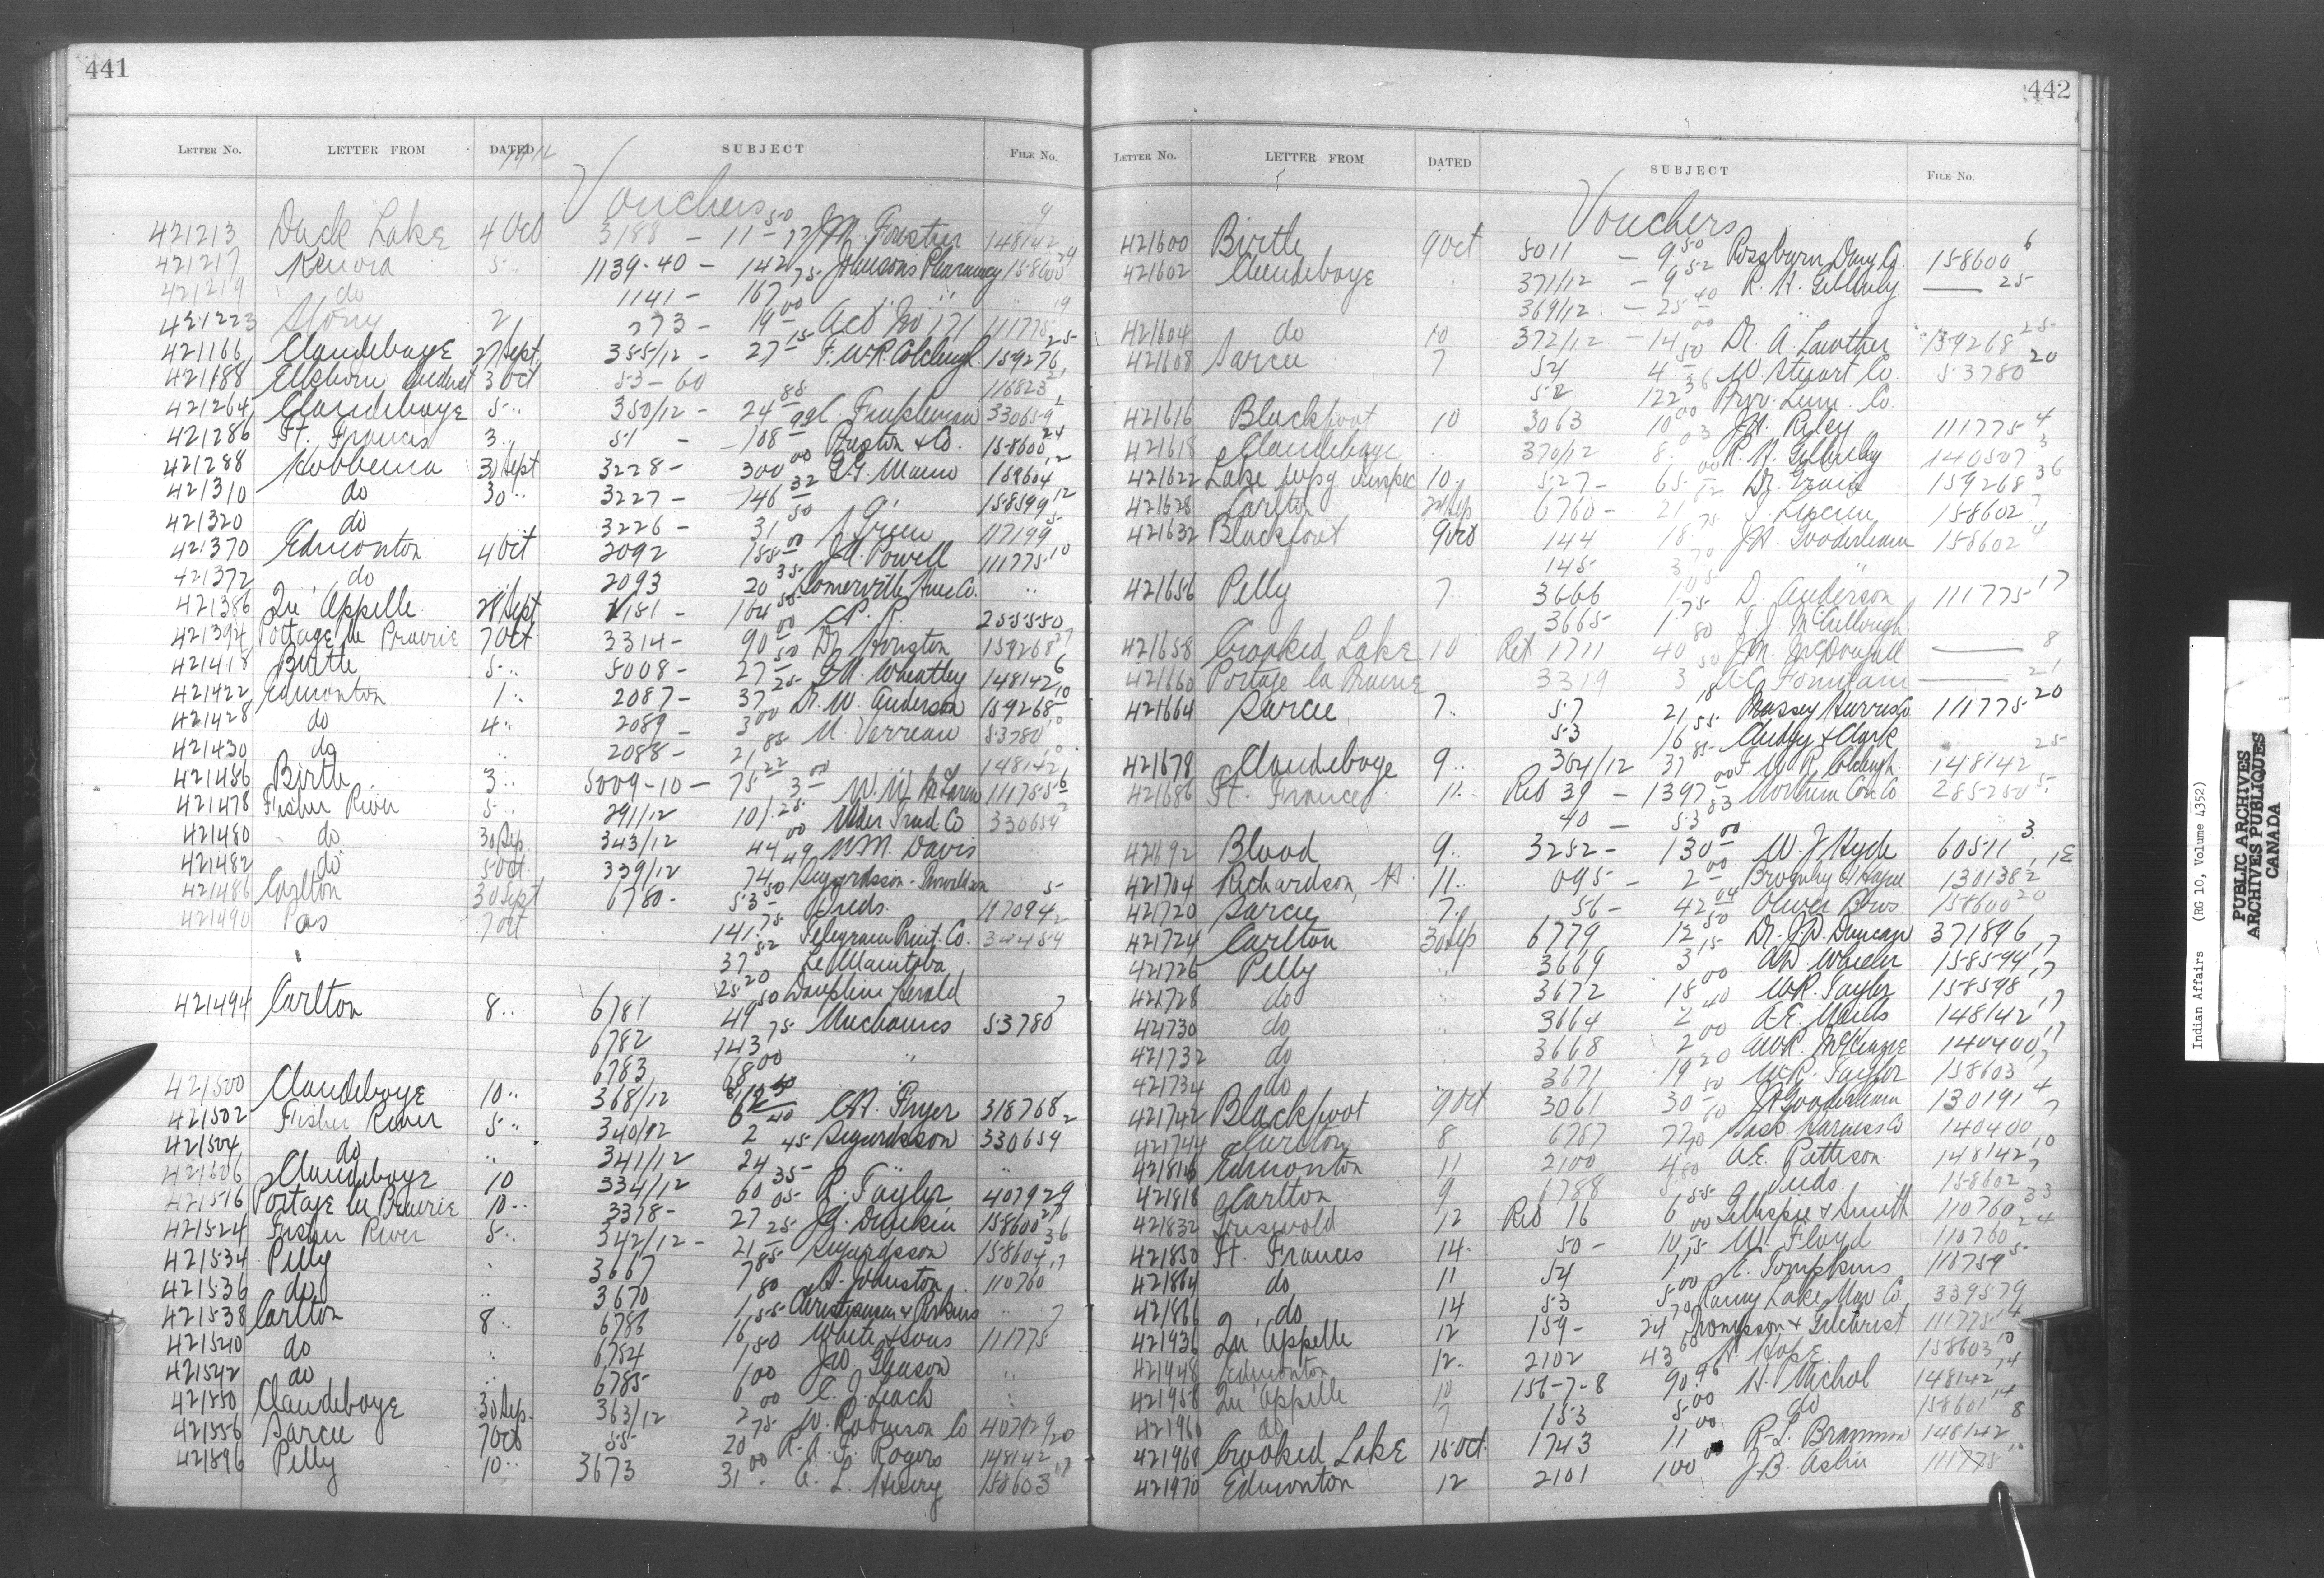 441
LETTER No. LETTER FROM DATED SUBJECT FILE No.
1912
Vouchers
421213 Duck Lake 4 Oct 3188 - 11-50 148142 9
421217 Kenora 5 " 1139-40 - 142 75 Johnsons Pharmacy 158600 29
421219 do 1141 - 167 " "
421223 Stony 2 " 273 - 19 00 Act No 171 111775 19
421166 Clandeboye 27 Sept. 355/12 - 27 15 F. W. R. Colcleugh 159276 25
421188 Elkhorn 3 Oct 53-60 116823
421264 Clandeboye 5 " 350/12 - 24 88 330659 2
421286 Ft. Frances 3 " 51 - 108 99 Preston & Co. 158600 24
421288 Hobbema 30 Sept 3228 - 300 00 159604 12
421310 do 30 " 3227 - 146 32 158599 12
421320 do 3226 - 31 50 117199
421370 Edmonton 4 Oct 2092 188 00 Powell 111775 10
421372 do 2093 20 35 Somerville Hwe Co. "
421386 Qu'Appelle 28 Sept 1181 - 164 55 C.P.R. 255550
421394 Portage la Prairie 7 Oct 3314 - 90 00 Dr. Houston 159268 27
421418 Birtle 5 " 5008 - 27 50 Wheatley 148142 6
421422 Edmonton 1 " 2087 - 37 25 Dr. W. Anderson 159268 10
421428 do 4 " 2089 - 3 00 M. Verreau 53780 10
421430 do " 2088 - 21 85 148142 10
421456 Birtle 3 " 5009-10 - 75 22 3 00 W. W. McLaren 111755 6
421478 Fisher River 5 " 291/12 101 25 330659 2
421480 do 30 Sep. 343/12 44 00 Wm. Davis
421482 do 5 Oct 339/12 74 49 Sigurdsson-Thorvaldson
421486 Carlton 30 Sept 6780 - 53 50 Inds. 117094 5
421490 Pas 7 Oct 141 75 Telegram Print. Co.
37 52 Le Manitoba
25 20 Dauphin Herald
421494 Carlton 8 " 6781 49 50 Mechanics 53780 7
6782 143 75
6783 68 00 "
421500 Clandeboye 10 " 368/12 C.H. Fryer 318768
421502 Fisher River 5 " 340/12 2 40 Sigurdsson 330659 2
421504 do " 341/12 24 45 "
421506 Clandeboye 10 334/12 60 35 R. Tayler 407929
421516 Portage la Prairie 10 " 3318 - 27 05 158600 27
421524 Fisher River 5 " 342/12 - 21 25 Sigurdsson 158604 36
421534 Pelly " 3667 7 85 Johnston 110760 17
421536 do " 3670 1 80 Christianson & Perkins "
421538 Carlton 8 " 6786 16 55 White & Sons 111775 7
421540 do " 6784 1 50 Jno Gleason
421542 do " 6785 6 00 C. J. Leach "
421550 Clandeboye 30 Sep. 363/12 2 00 W. Robinson Co 407929
421556 Sarcee 7 Oct 55 20 75 R. A. F. Rogers 148142 20
421596 Pelly 10 " 3673 31 00 A. L. Henry 158603 17
442
LETTER No. LETTER FROM DATED SUBJECT FILE No.
Vouchers
421600 Birtle 9 Oct 5011 - 9 50 Rossburn Drug Co. 158600 6
421602 Clandeboye " 371/12 - 9 52 R. H. Gilhuly — 25
369/12 - 25 40 "
421604 do 10 372/12 - 14 00 Dr. A. Lawther 159268 25
421608 Sarcee 7 54 4 50 W. Stuart Co. 53780 20
52 122 36 Prov. Lum. Co.
421616 Blackfoot 10 3063 10 00 Riley 111775 4
421618 Clandeboye " 370/12 8 03 R. H. Gilhuly 140507 3
421622 Lake Wpg Inspec 10 " 527 - 65 00 Dr. Grain 159268 36
421628 Carlton 24 Sep 6760 - 21 12 158602 7
421632 Blackfoot 9 Oct 144 18 75 J.H. Gooderham 158602 4
145 3 70 "
421656 Pelly 7 3666 D. Anderson 111775 17
3665 1 75 McCullough
421658 Crooked Lake 10 Ret 1711 40 80 J.M. McDougall — 8
421660 Portage la Prairie 3319 3 50 A.G. Fonseca — 21
421664 Sarcee 7 " 57 21 18 Massey Harris Co 111775 20
53 16 55 Clark
421678 Clandeboye 9 " 364/12 37 85 F. W. R. Colcleugh 148142 25
421686 Ft. Frances 11 " Ret 39 - 1397 00 Northern Con Co 285250 5
40 - 53 83
421692 Blood 9 " 3252 - 130 00 W. J. Hyde 60511 3
421704 Richardson, H. 11 " 095 - 2 00 Hague 130138
421720 Sarcee 7 " 56 - 42 04 Oliver Bros 158600 20
421724 Carlton 30 Sep 6779 12 50 Dr. J.D. Duncan 371896
421726 Pelly " 3669 3 15 Wheeler 158594 17
421728 do " 3672 18 00 W.R. Tayler 158598 17
421730 do " 3664 2 40 A.E. Wells 148142 17
421732 do " 3668 2 00 W.R. McKenzie 140400 17
421734 do " 3671 19 20 W.R. Tayler 158603 17
421742 Blackfoot 9 Oct 3061 30 50 J.H. Gooderham 130191 4
421744 Carlton 8 6787 Sask Harness Co 140400 7
421816 Edmonton 11 2100 4 A.E. Pattison 148142 10
421818 Carlton 9 6788 5 80 Inds. 158602 7
421832 Griswold 12 Ret 16 6 55 Gillespie & Smith 110760 33
421850 Ft. Frances 14 " 50 - 10 00 W. Floyd 110760 24
421864 do 11 54 1 15 Tompkins 118759 5
421866 do 14 53 5 00 Rainy Lake Nav Co. 339579
421936 Qu'Appelle 12 159 - 24 70 Thompson & Gilchrist 111775 14
421948 Edmonton 12 " 2102 43 60 Hope 158603 10
421958 Qu'Appelle 10 156-7-8 90 96 H. Nichol 148142 14
421960 do 7 153 5 00 do 158601 14
421968 Crooked Lake 15 Oct. 1743 11 00 R. L. Brammon 148142 8
421970 Edmonton 12 2101 100 00 J.B. Aslin 111775 10
Indian Affairs (RG 10, Volume 4352)
PUBLIC ARCHIVES
ARCHIVES PUBLIQUES
CANADA